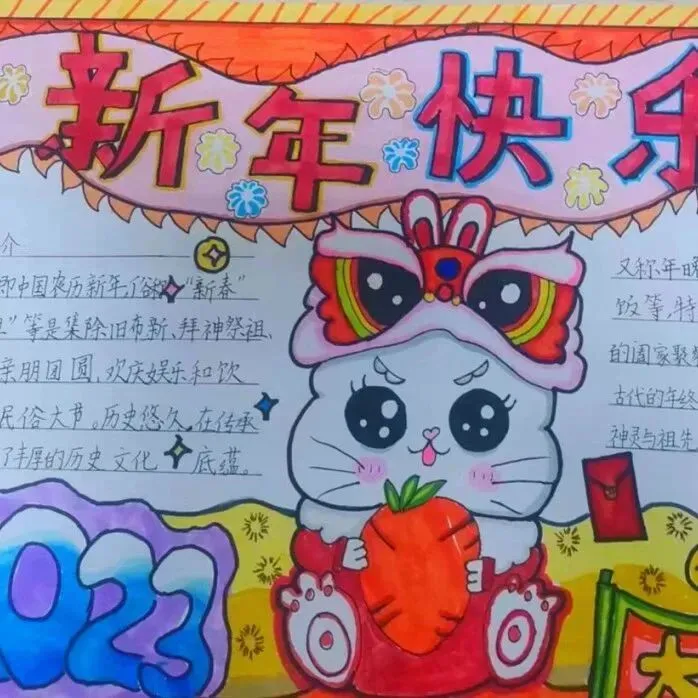 新年快乐
介
即中国农历新年,俗称“新春”
”等是集除旧布新、拜神祭祖、
亲朋团圆,欢庆娱乐和饮
民俗大节。历史悠久,在传承
了丰厚的历史文化底蕴。
又称,年晚
饭等,特
的阖家聚
古代的年终
神灵与祖先
2023
大